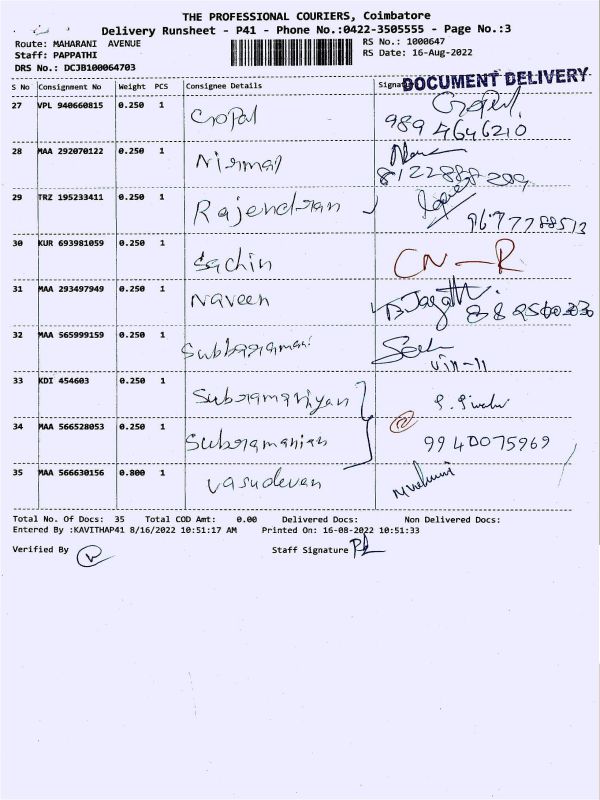 THE PROFESSIONAL COURIERS, Coimbatore
Delivery Runsheet - P41 - Phone No.:0422-3505555 - Page No.:3
Route: MAHARANI AVENUE RS No.: 1000647
Staff: PAPPATHI RS Date: 16-Aug-2022
DRS No.: DCJB100064703
DOCUMENT DELIVERY
S No Consignment No Weight PCS Consignee Details
27 VPL 940660815 0.250 1 Gopal
989 4646210
28 MAA 292070122 0.250 1 Nirmal
29 TRZ 195233411 0.250 1 Rajendran
9677788513
30 KUR 693981059 0.250 1 Sachin CN-R
31 MAA 293497949 0.250 1 Naveen
32 MAA 565999159 0.250 1
33 KDI 454603 0.250 1 Subramaniyan
34 MAA 566528053 0.250 1 Subramanian 9940075969
35 MAA 566630156 0.800 1 Vasudevan
Total No. Of Docs: 35 Total COD Amt: 0.00 Delivered Docs: Non Delivered Docs:
Entered By :KAVITHAP41 8/16/2022 10:51:17 AM Printed On: 16-08-2022 10:51:33
Verified By Staff Signature